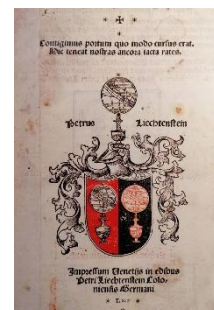 Contigimus portum quo modo cursus erat.
Hic teneat nostras ancora iacta rates.
Petrus Liechtenstein
Impressum Venetijs in edibus
Petri Liechtenstein Colo-
niensis Germani